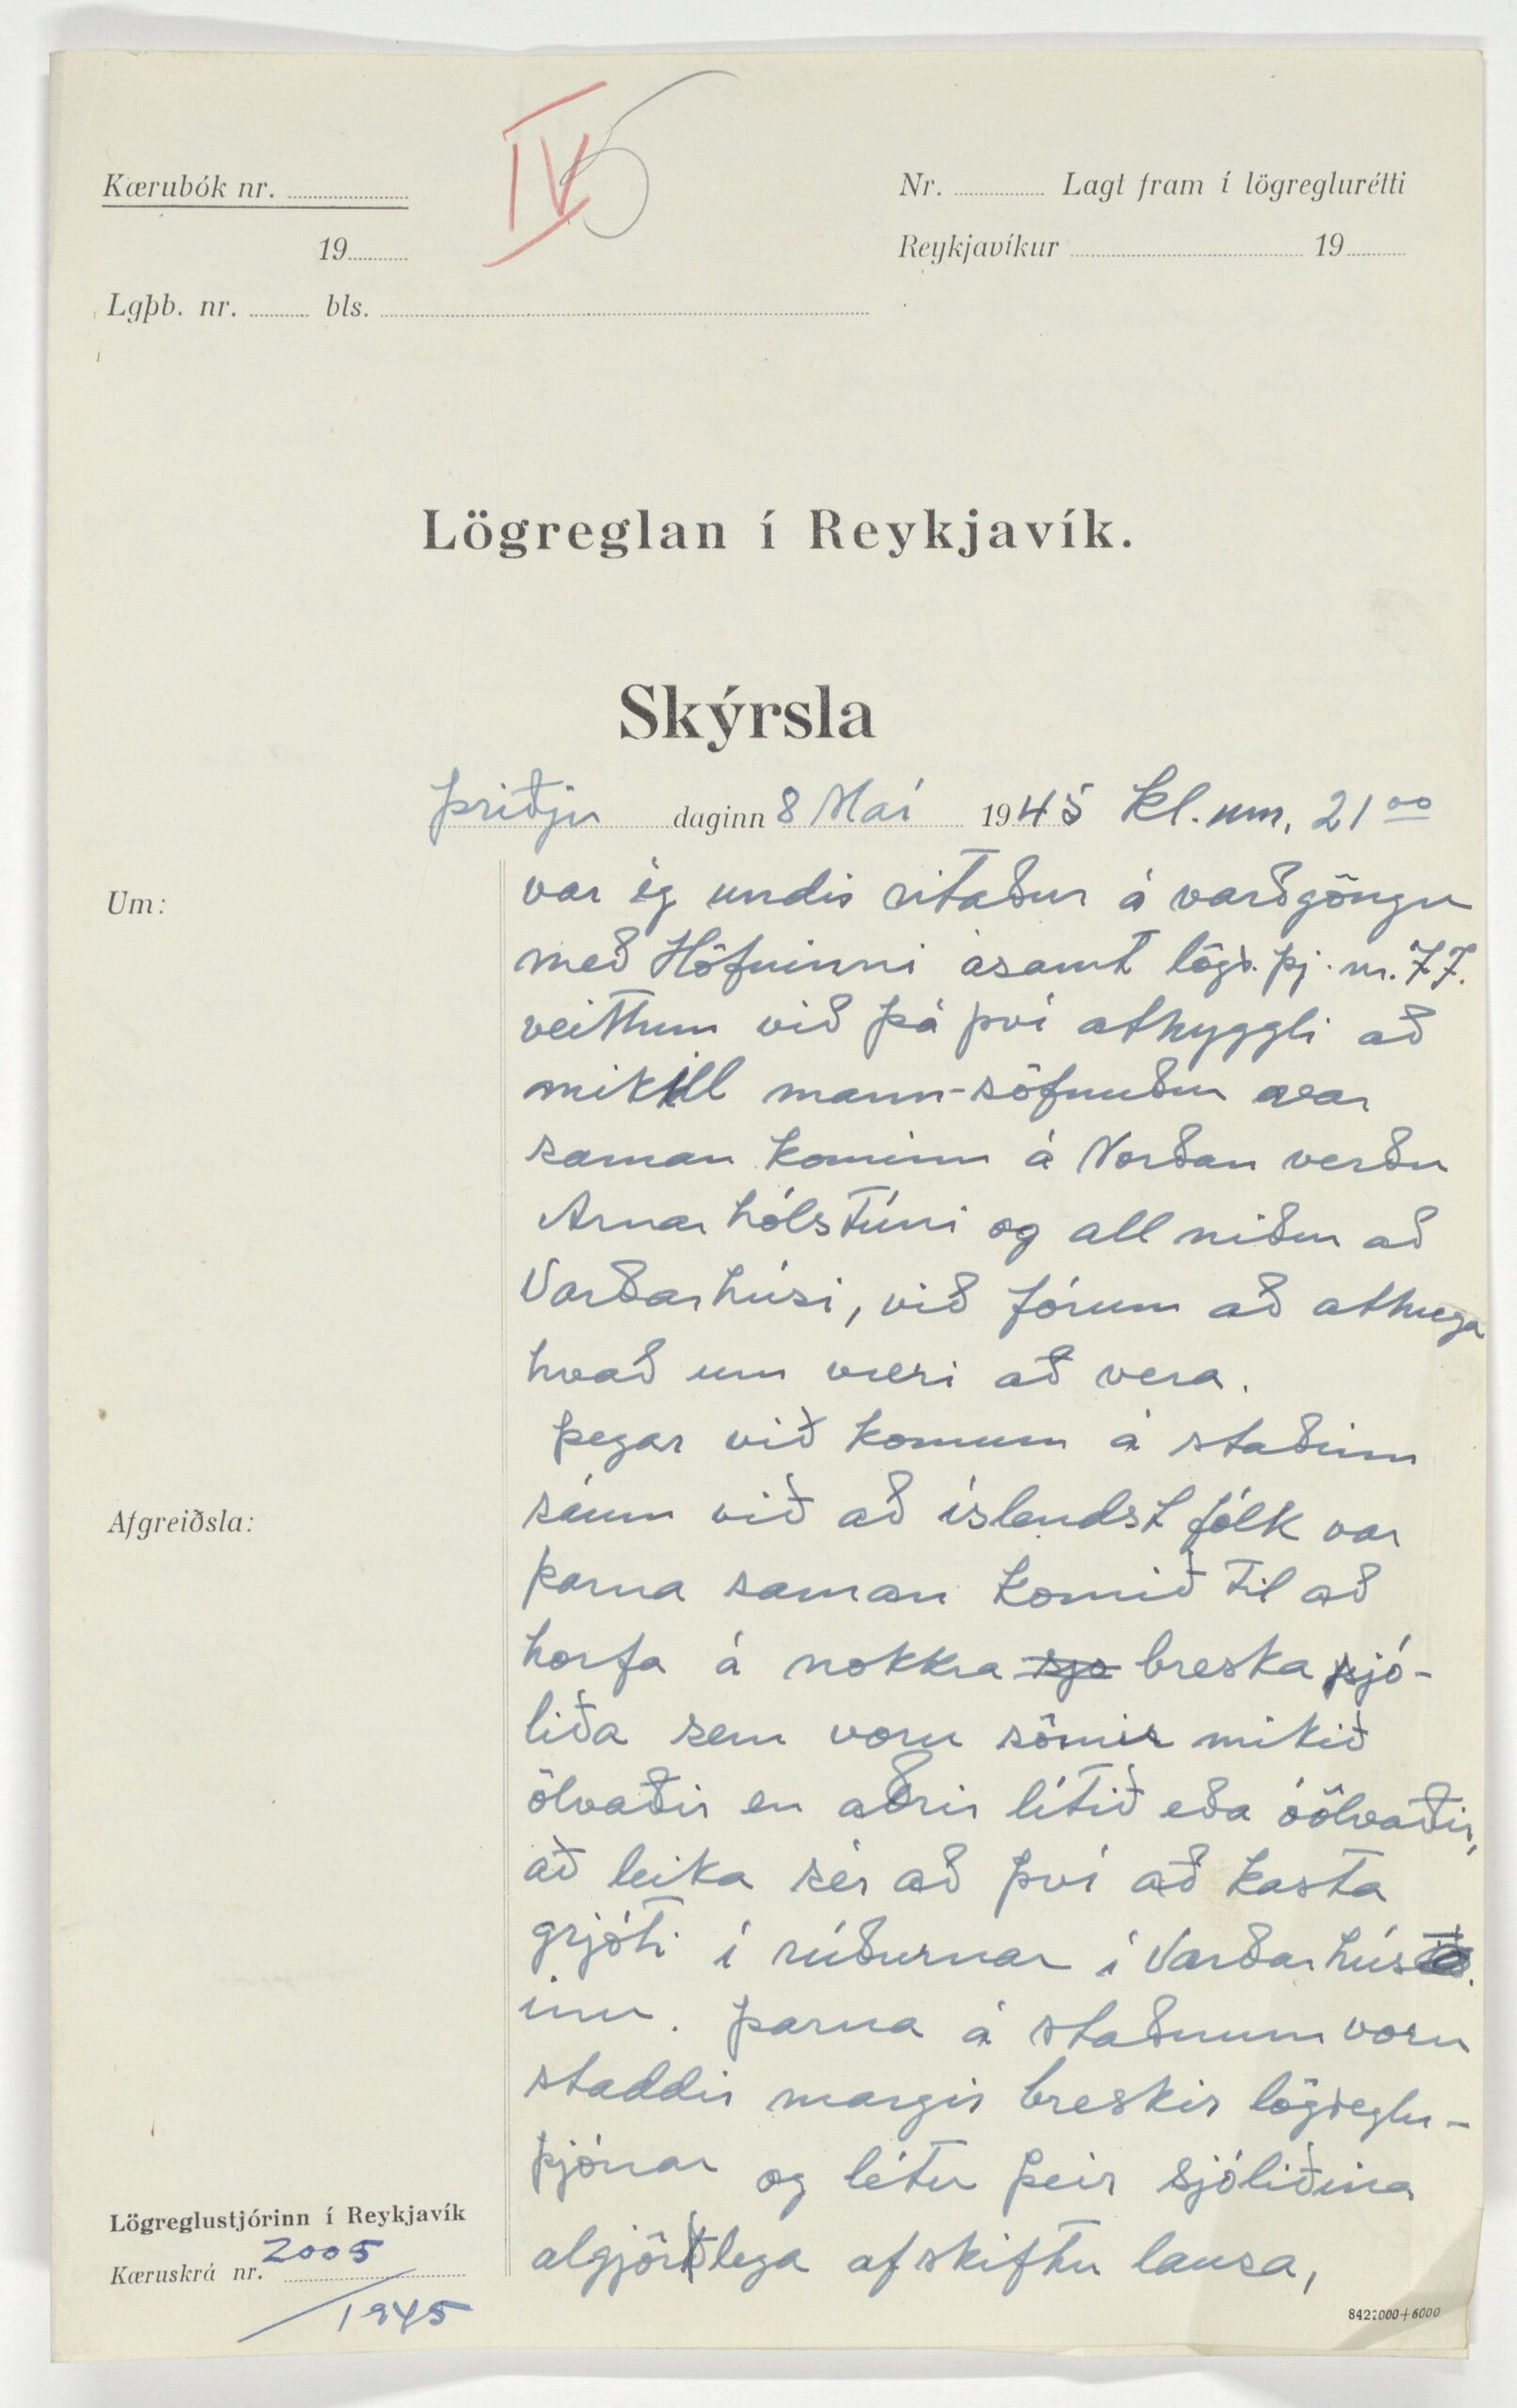 IV 5
Kærubók nr.
19
Lgþb. nr. bls.
Nr. Lagt fram í lögreglurétti
Reykjavíkur 19
Lögreglan í Reykjavík.
Skýrsla
þriðju daginn 8 Maí 1945 kl. um. 21 00
Um:
var ég undir ritaður á varðgöngu
með Höfninni ásamt lögr. þj. nr. 77.
veittum við þá því athyggli að
mikill mann-söfnuður var
saman kominn á Norðan verðu
Arnarhólstúni og all niður að
Varðarhúsi, við fórum að athuga
hvað um væri að vera.
þegar við komum á staðinn
sáum við að íslendskt fólk var
Afgreiðsla:
þarna saman komið til að
horfa á nokkra sjo breska sjó-
liða sem voru sömir mikið
ölvaðir en aðrir lítið eða óölvaðir,
að leika sér að því að kasta
grjóti í rúðurnar í Varðarhús
inu. þarna á staðnum voru
staddir margir breskir lögreglu-
þjónar og létu þeir sjóliðina
algjörðlega afskiftu lausa,
Lögreglustjórinn í Reykjavík
Kæruskrá nr. 2005
/1945
8422000+6000